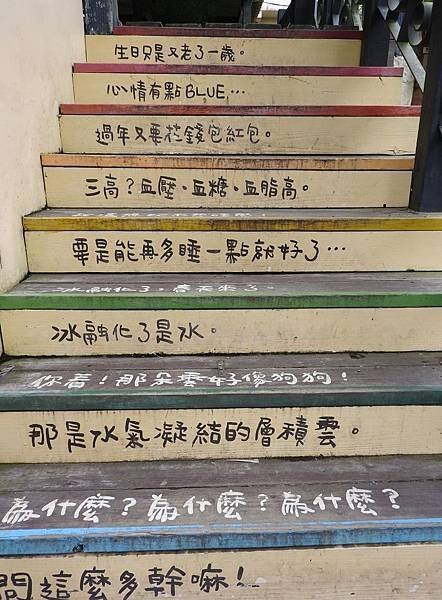 生日只是又老了一歲。
心情有點BLUE…
過年又要花錢包紅包。
三高？血壓、血糖、血脂高。
要是能再多睡一點就好了…
冰融化了，春天來了。
冰融化了是水。
你看！那朵雲好像狗狗！
那是水氣凝結的層積雲。
為什麼？為什麼？為什麼？
問這麼多幹嘛！